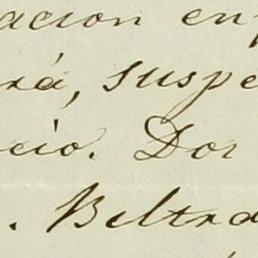 acion en
rá, suspe
cio. Dor
. Beltra